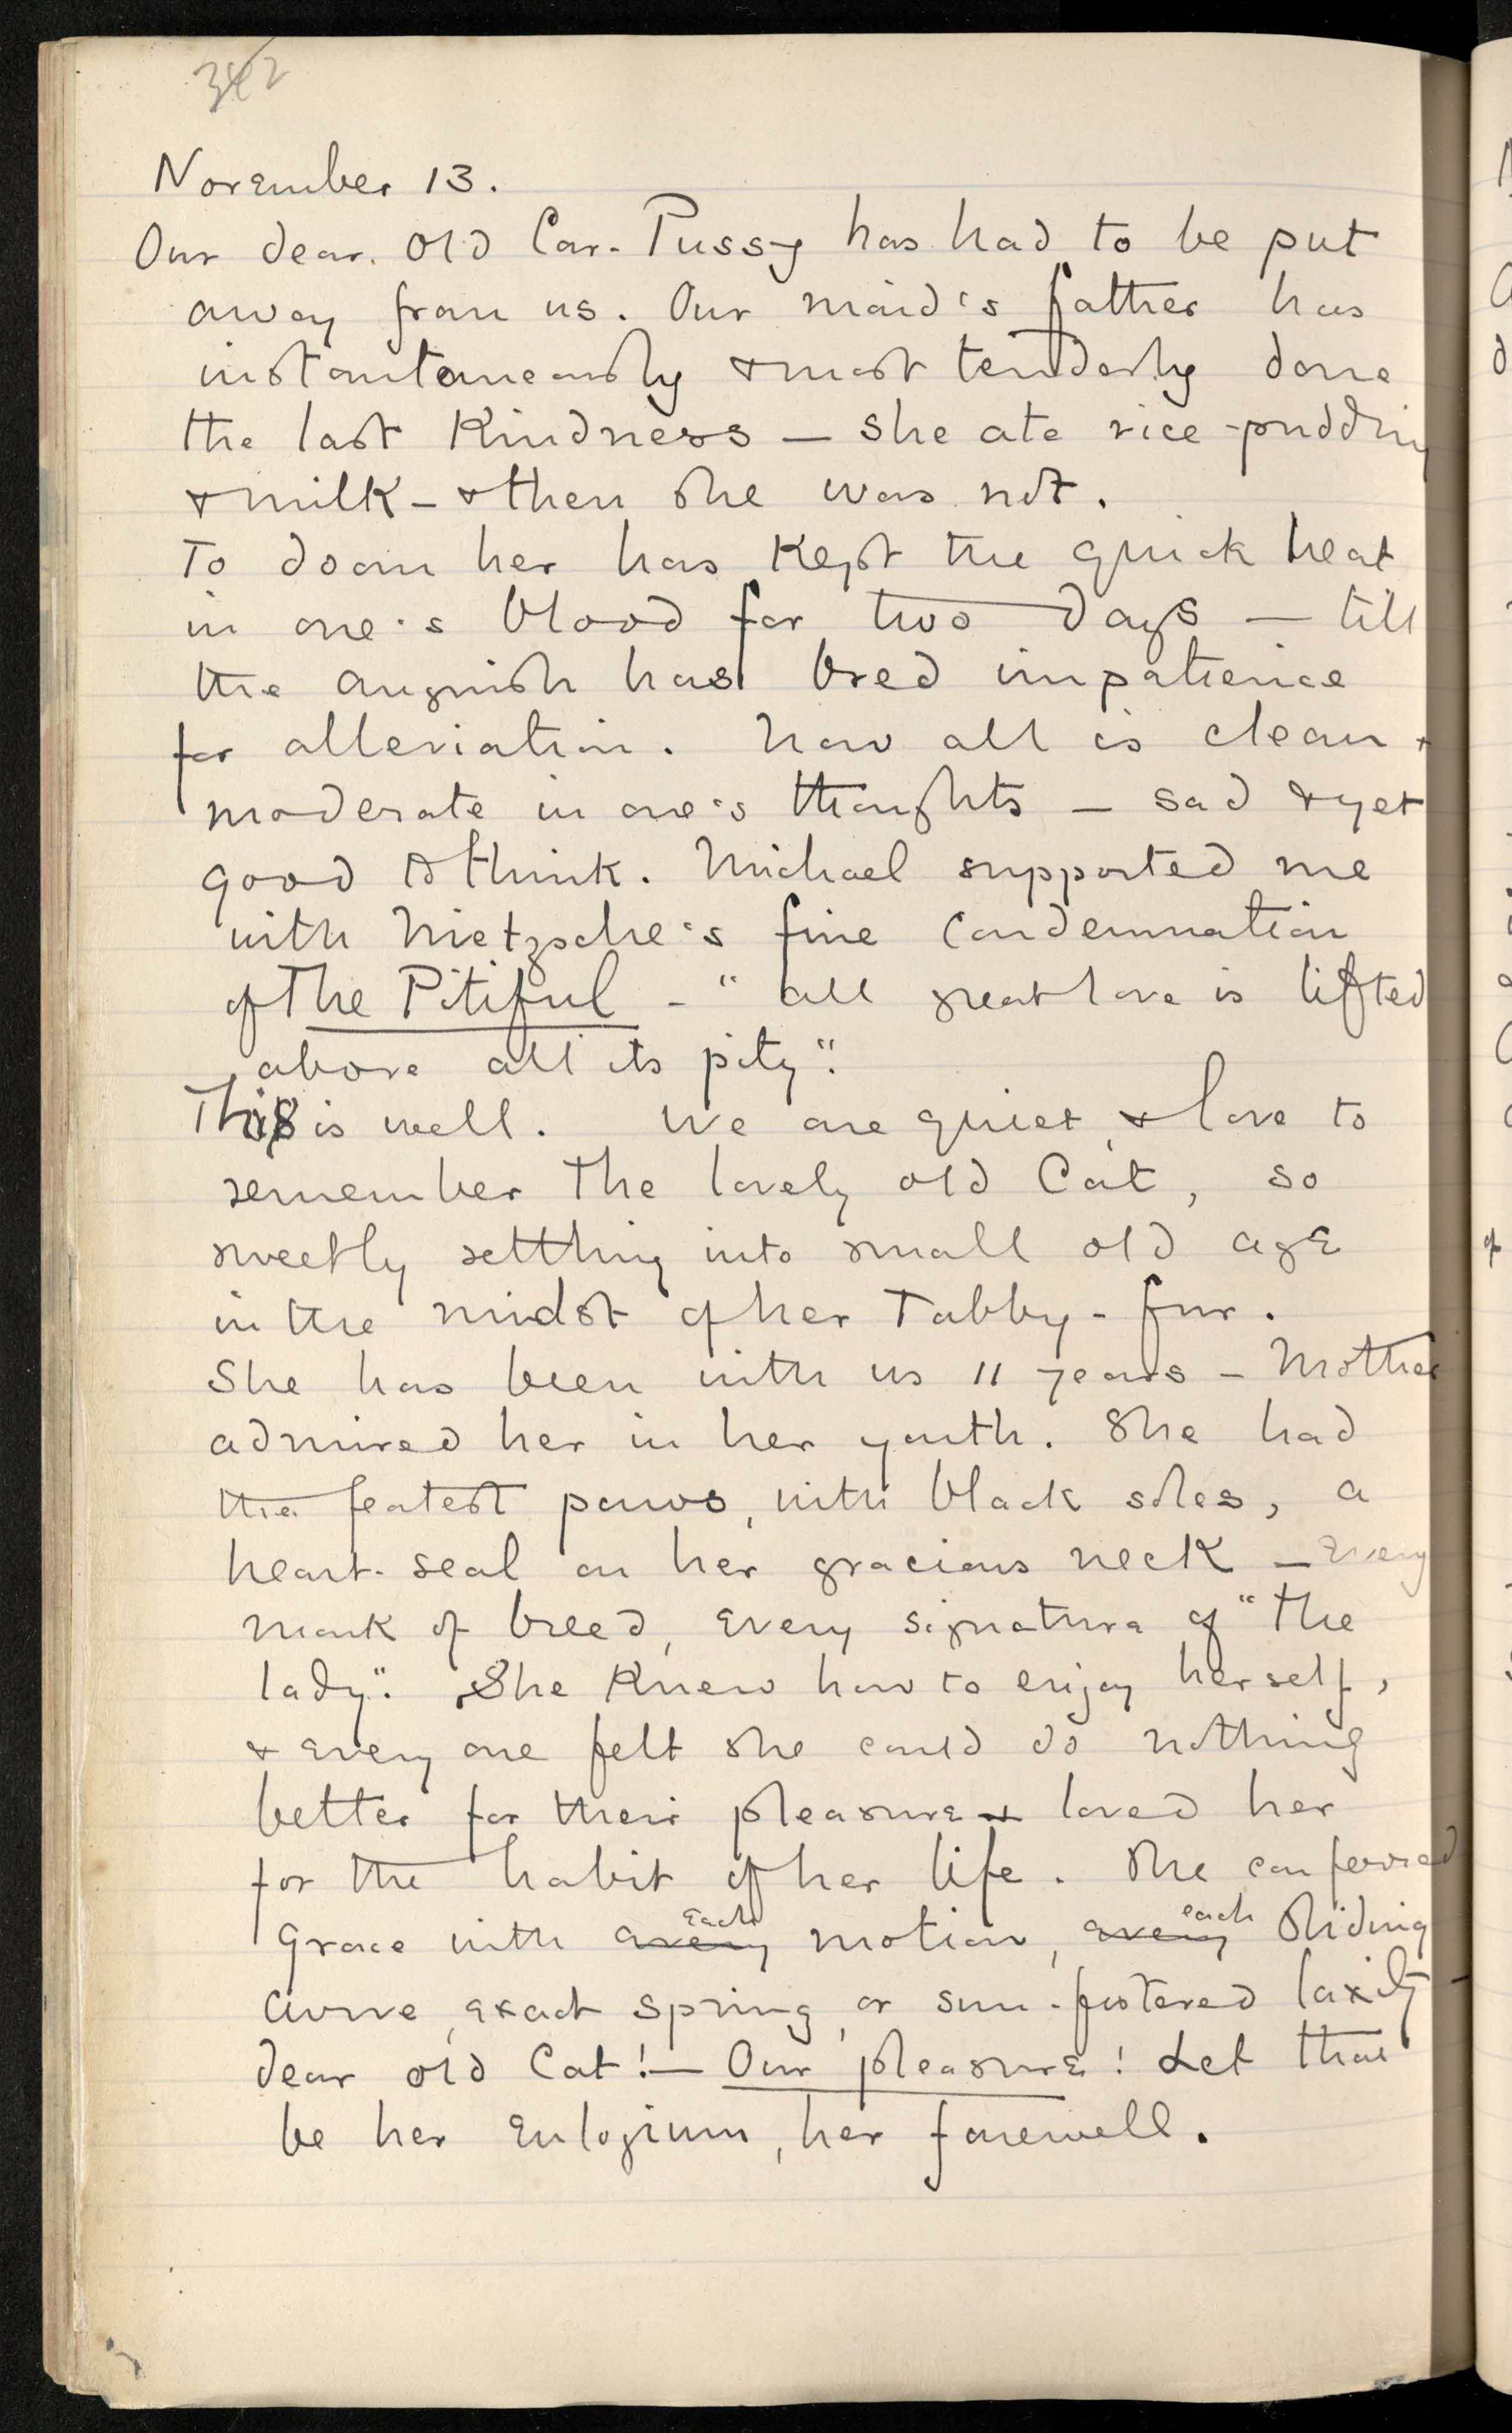 342
November 13.
Our dear old Car-Pussy has had to be put
away from us. Our maid's father has
instantaneously & most tenderly done
the last Kindness — she ate rice-pudding
& milk — & then she was not.
To doom her has Kept the quick heat
in one's blood for two days — till
the anguish has bred impatience
for alleviation. Now all is clean &
moderate in one's thoughts — sad & yet
good to think. Michael supported me
with Nietzsche's fine condemnation
of The Pitiful - "all great love is lifted
above all its pity".
This is well. We are quiet, & love to
remember the lovely old Cat, so
sweetly settling into small old age
in the midst of her Tabby-fur.
She has been with us 11 years — Mother
admired her in her youth. She had
the featest paws, with black soles, a
heart-seal on her gracious neck — every
mark of breed, every signature of "the
lady". She Knew how to enjoy herself,
& every one felt she could do nothing
better for their pleasure & loved her
for the habit of her life. She conferred
grace with every each motion, every each sliding
curve, exact spring, or sun-fostered laxity —
dear old Cat! — Our pleasure! Let that
be her Eulogium, her farewell.